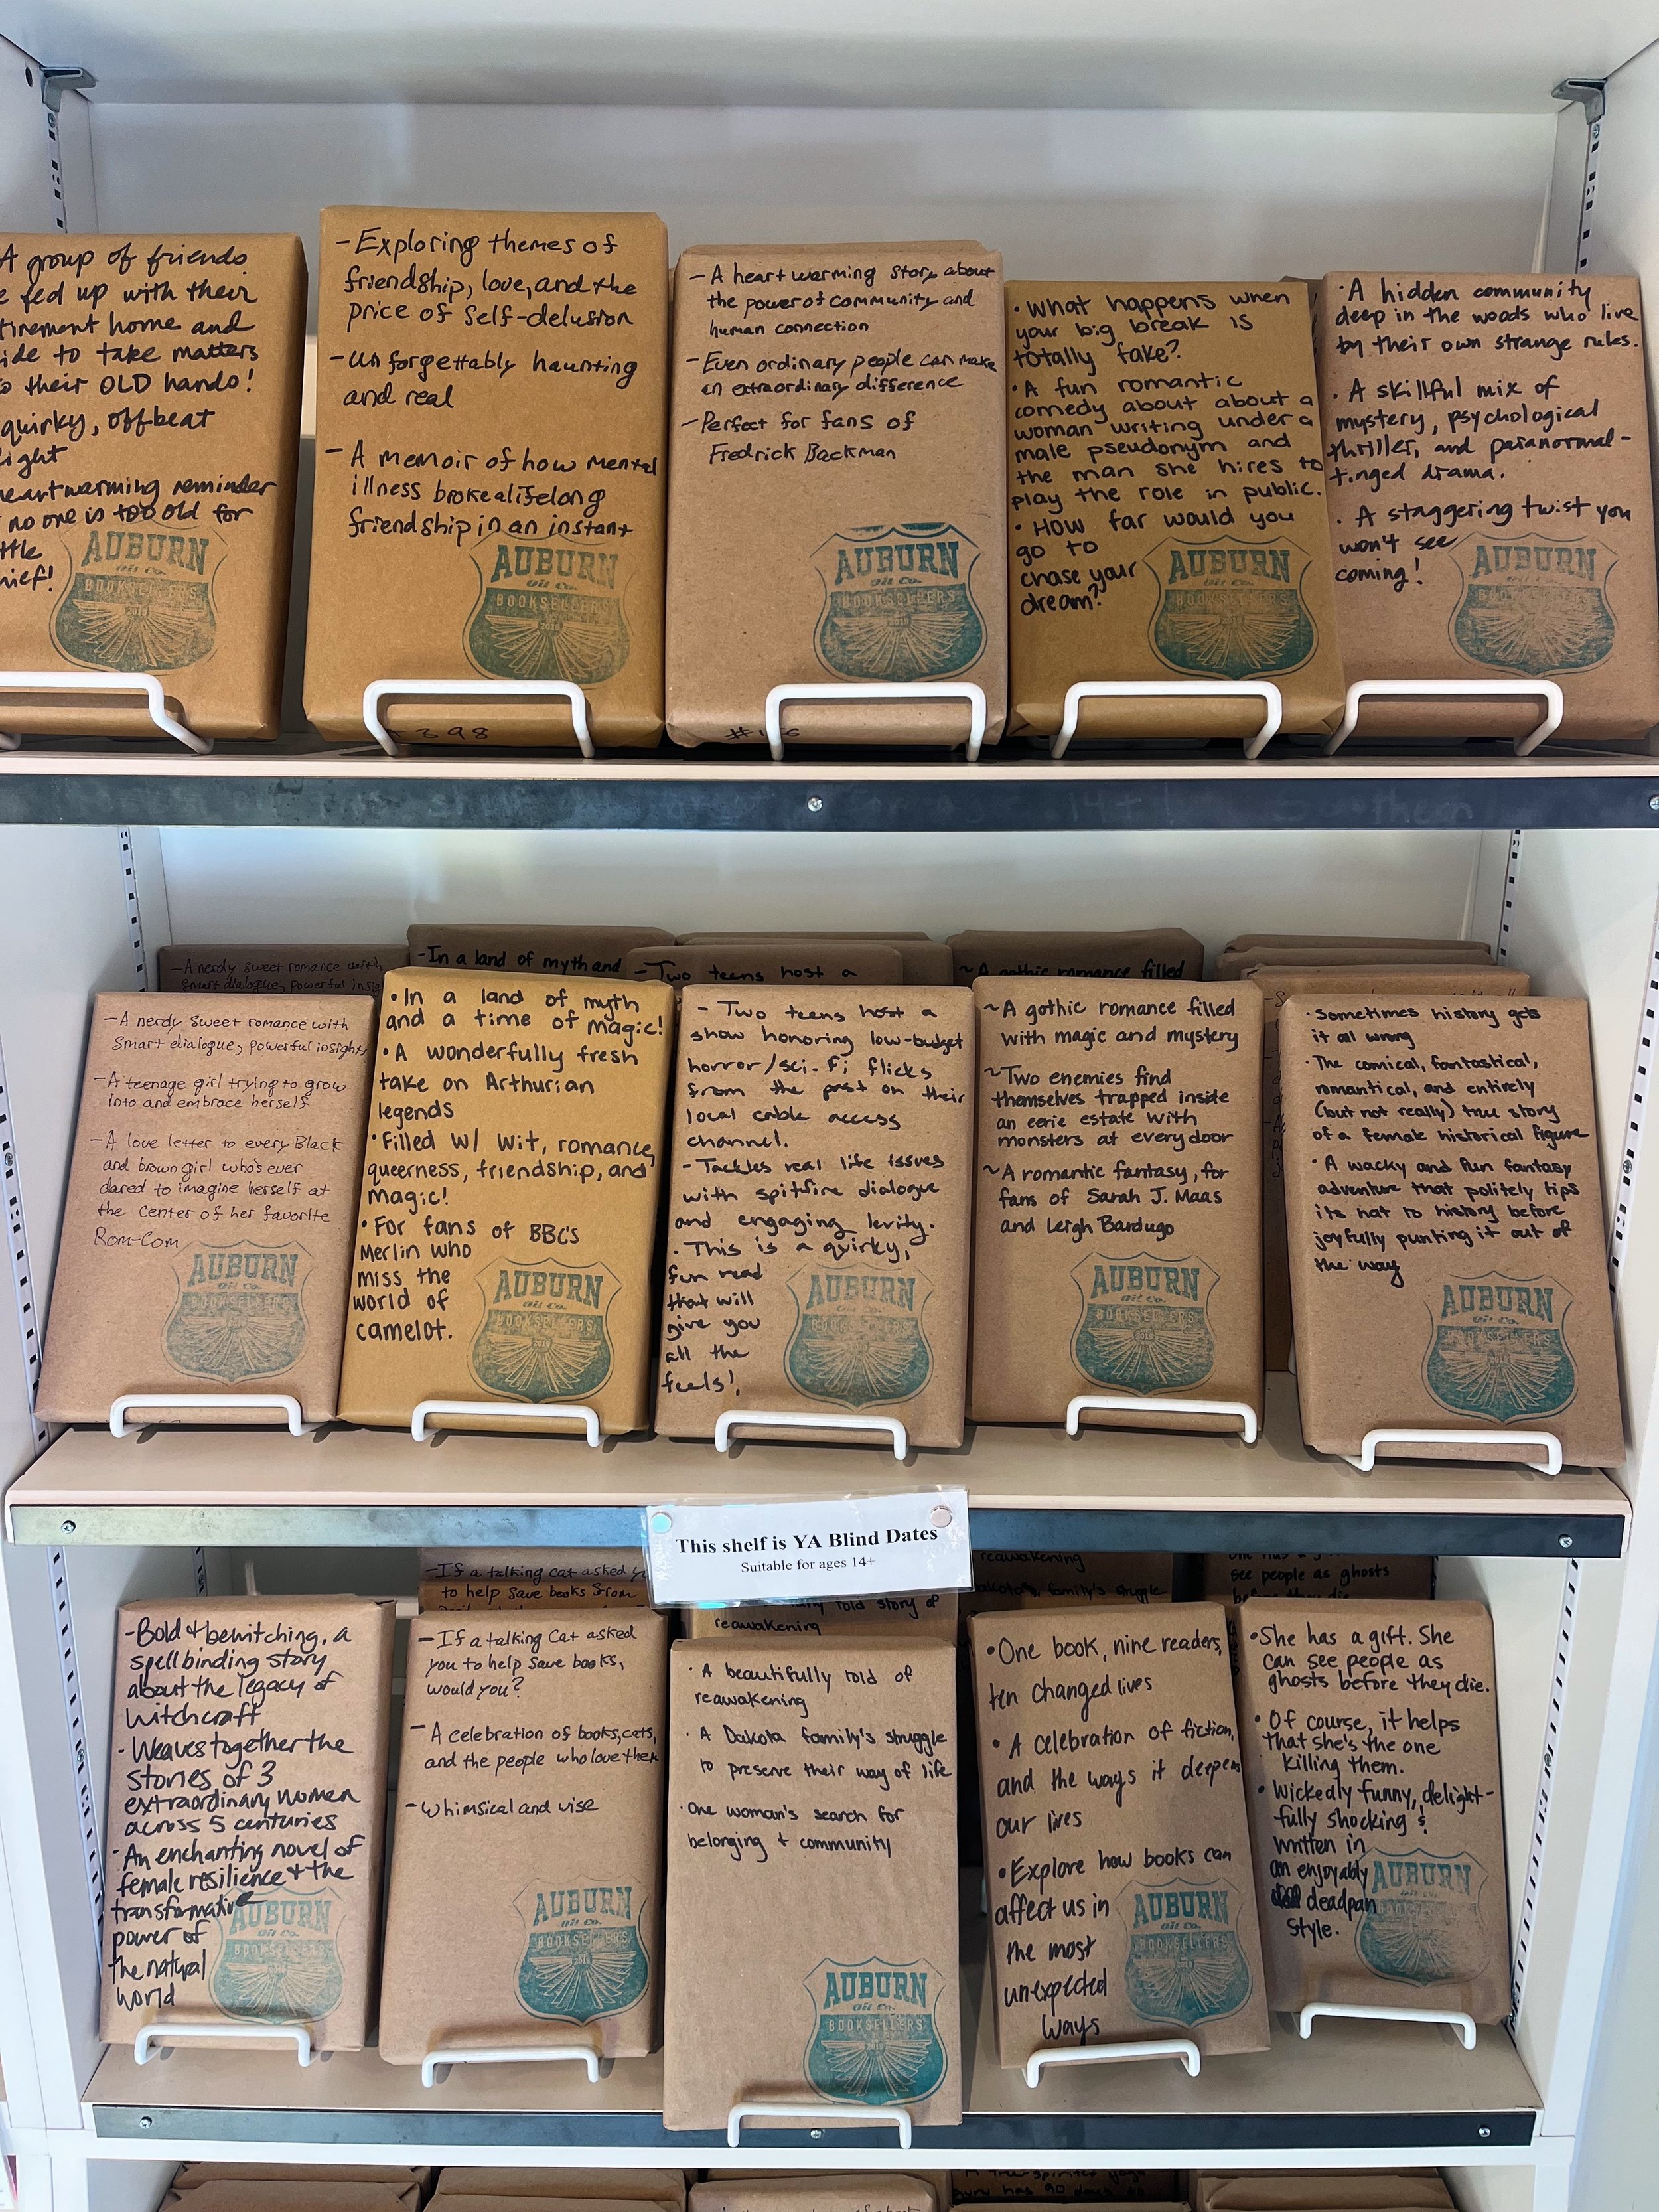 A group of friends
fed up with their
home and
to take matters
their OLD hands!
quirky, offbeat
heartwarming reminder
no one is too old for
AUBURN
Oil Co.
BOOKSELLERS
2019
- Exploring themes of
friendship, love, and the
price of self-delusion
- Unforgettably haunting
and real
- A memoir of how mental
illness broke a lifelong
friendship in an instant
AUBURN
Oil Co.
BOOKSELLERS
2019
398
- A heartwarming story about
the power of community and
human connection
- Even ordinary people can make
an extraordinary difference
- Perfect for fans of
Fredrick Backman
AUBURN
Oil Co.
BOOKSELLERS
2019
• What happens when
your big break is
totally fake?
• A fun romantic
comedy about about a
woman writing under a
male pseudonym and
the man she hires to
play the role in public.
• How far would you
go to
chase your
dream?
AUBURN
Oil Co.
BOOKSELLERS
• A hidden community
deep in the woods who live
by their own strange rules.
• A skillful mix of
mystery, psychological
thriller, and paranormal-
tinged drama.
• A staggering twist you
won't see
coming!
AUBURN
Oil Co.
BOOKSELLERS
- A nerdy sweet romance with
smart dialogue, powerful
- In a land of myth and
- Two teens host a
~ A gothic romance filled
- A nerdy sweet romance with
smart dialogue, powerful insights
- A teenage girl trying to grow
into and embrace herself
- A love letter to every Black
and brown girl who's ever
dared to imagine herself at
the center of her favorite
Rom-Com
AUBURN
Oil Co.
BOOKSELLERS
• In a land of myth
and a time of magic!
• A wonderfully fresh
take on Arthurian
legends
• Filled w/ wit, romance,
queerness, friendship, and
magic!
• For fans of BBC's
Merlin who
miss the
world of
camelot.
AUBURN
Oil Co.
BOOKSELLERS
2019
- Two teens host a
show honoring low-budget
horror/sci-fi flicks
from the past on their
local cable access
channel.
- Tackles real life issues
with spitfire dialogue
and engaging levity.
- This is a quirky,
fun read
that will
give you
all the
feels!
AUBURN
Oil Co.
BOOKSELLERS
~ A gothic romance filled
with magic and mystery
~ Two enemies find
themselves trapped inside
an eerie estate with
monsters at every door
~ A romantic fantasy, for
fans of Sarah J. Maas
and Leigh Bardugo
AUBURN
Oil Co.
BOOKSELLERS
• Sometimes history gets
it all wrong
• The comical, fantastical,
romantical, and entirely
(but not really) true story
of a female historical figure
• A wacky and fun fantasy
adventure that politely tips
its hat to history before
joyfully punting it out of
the way
AUBURN
Oil Co.
BOOKSELLERS
This shelf is YA Blind Dates
Suitable for ages 14+
- If a talking cat asked
to help save books
told story of
reawakening
reawakening
family's struggle
see people as ghosts
- Bold & bewitching, a
spellbinding story
about the legacy of
witchcraft
- Weaves together the
stories of 3
extraordinary women
across 5 centuries
- An enchanting novel of
female resilience & the
transformative
power of
the natural
world
AUBURN
Oil Co.
BOOKSELLERS
- If a talking cat asked
you to help save books,
would you?
- A celebration of books, cats,
and the people who love them
- Whimsical and wise
AUBURN
Oil Co.
BOOKSELLERS
• A beautifully told of
reawakening
• A Dakota family's struggle
to preserve their way of life
• One woman's search for
belonging + community
AUBURN
Oil Co.
BOOKSELLERS
2019
• One book, nine readers,
ten changed lives
• A celebration of fiction,
and the ways it deepens
our lives
• Explore how books can
affect us in
the most
unexpected
ways
AUBURN
Oil Co.
BOOKSELLERS
• She has a gift. She
can see people as
ghosts before they die.
• Of course, it helps
that she's the one
killing them.
• Wickedly funny, delight-
fully shocking &
written in
an enjoyably
deadpan
style.
AUBURN
Oil Co.
BOOKSELLERS
has 90 days to